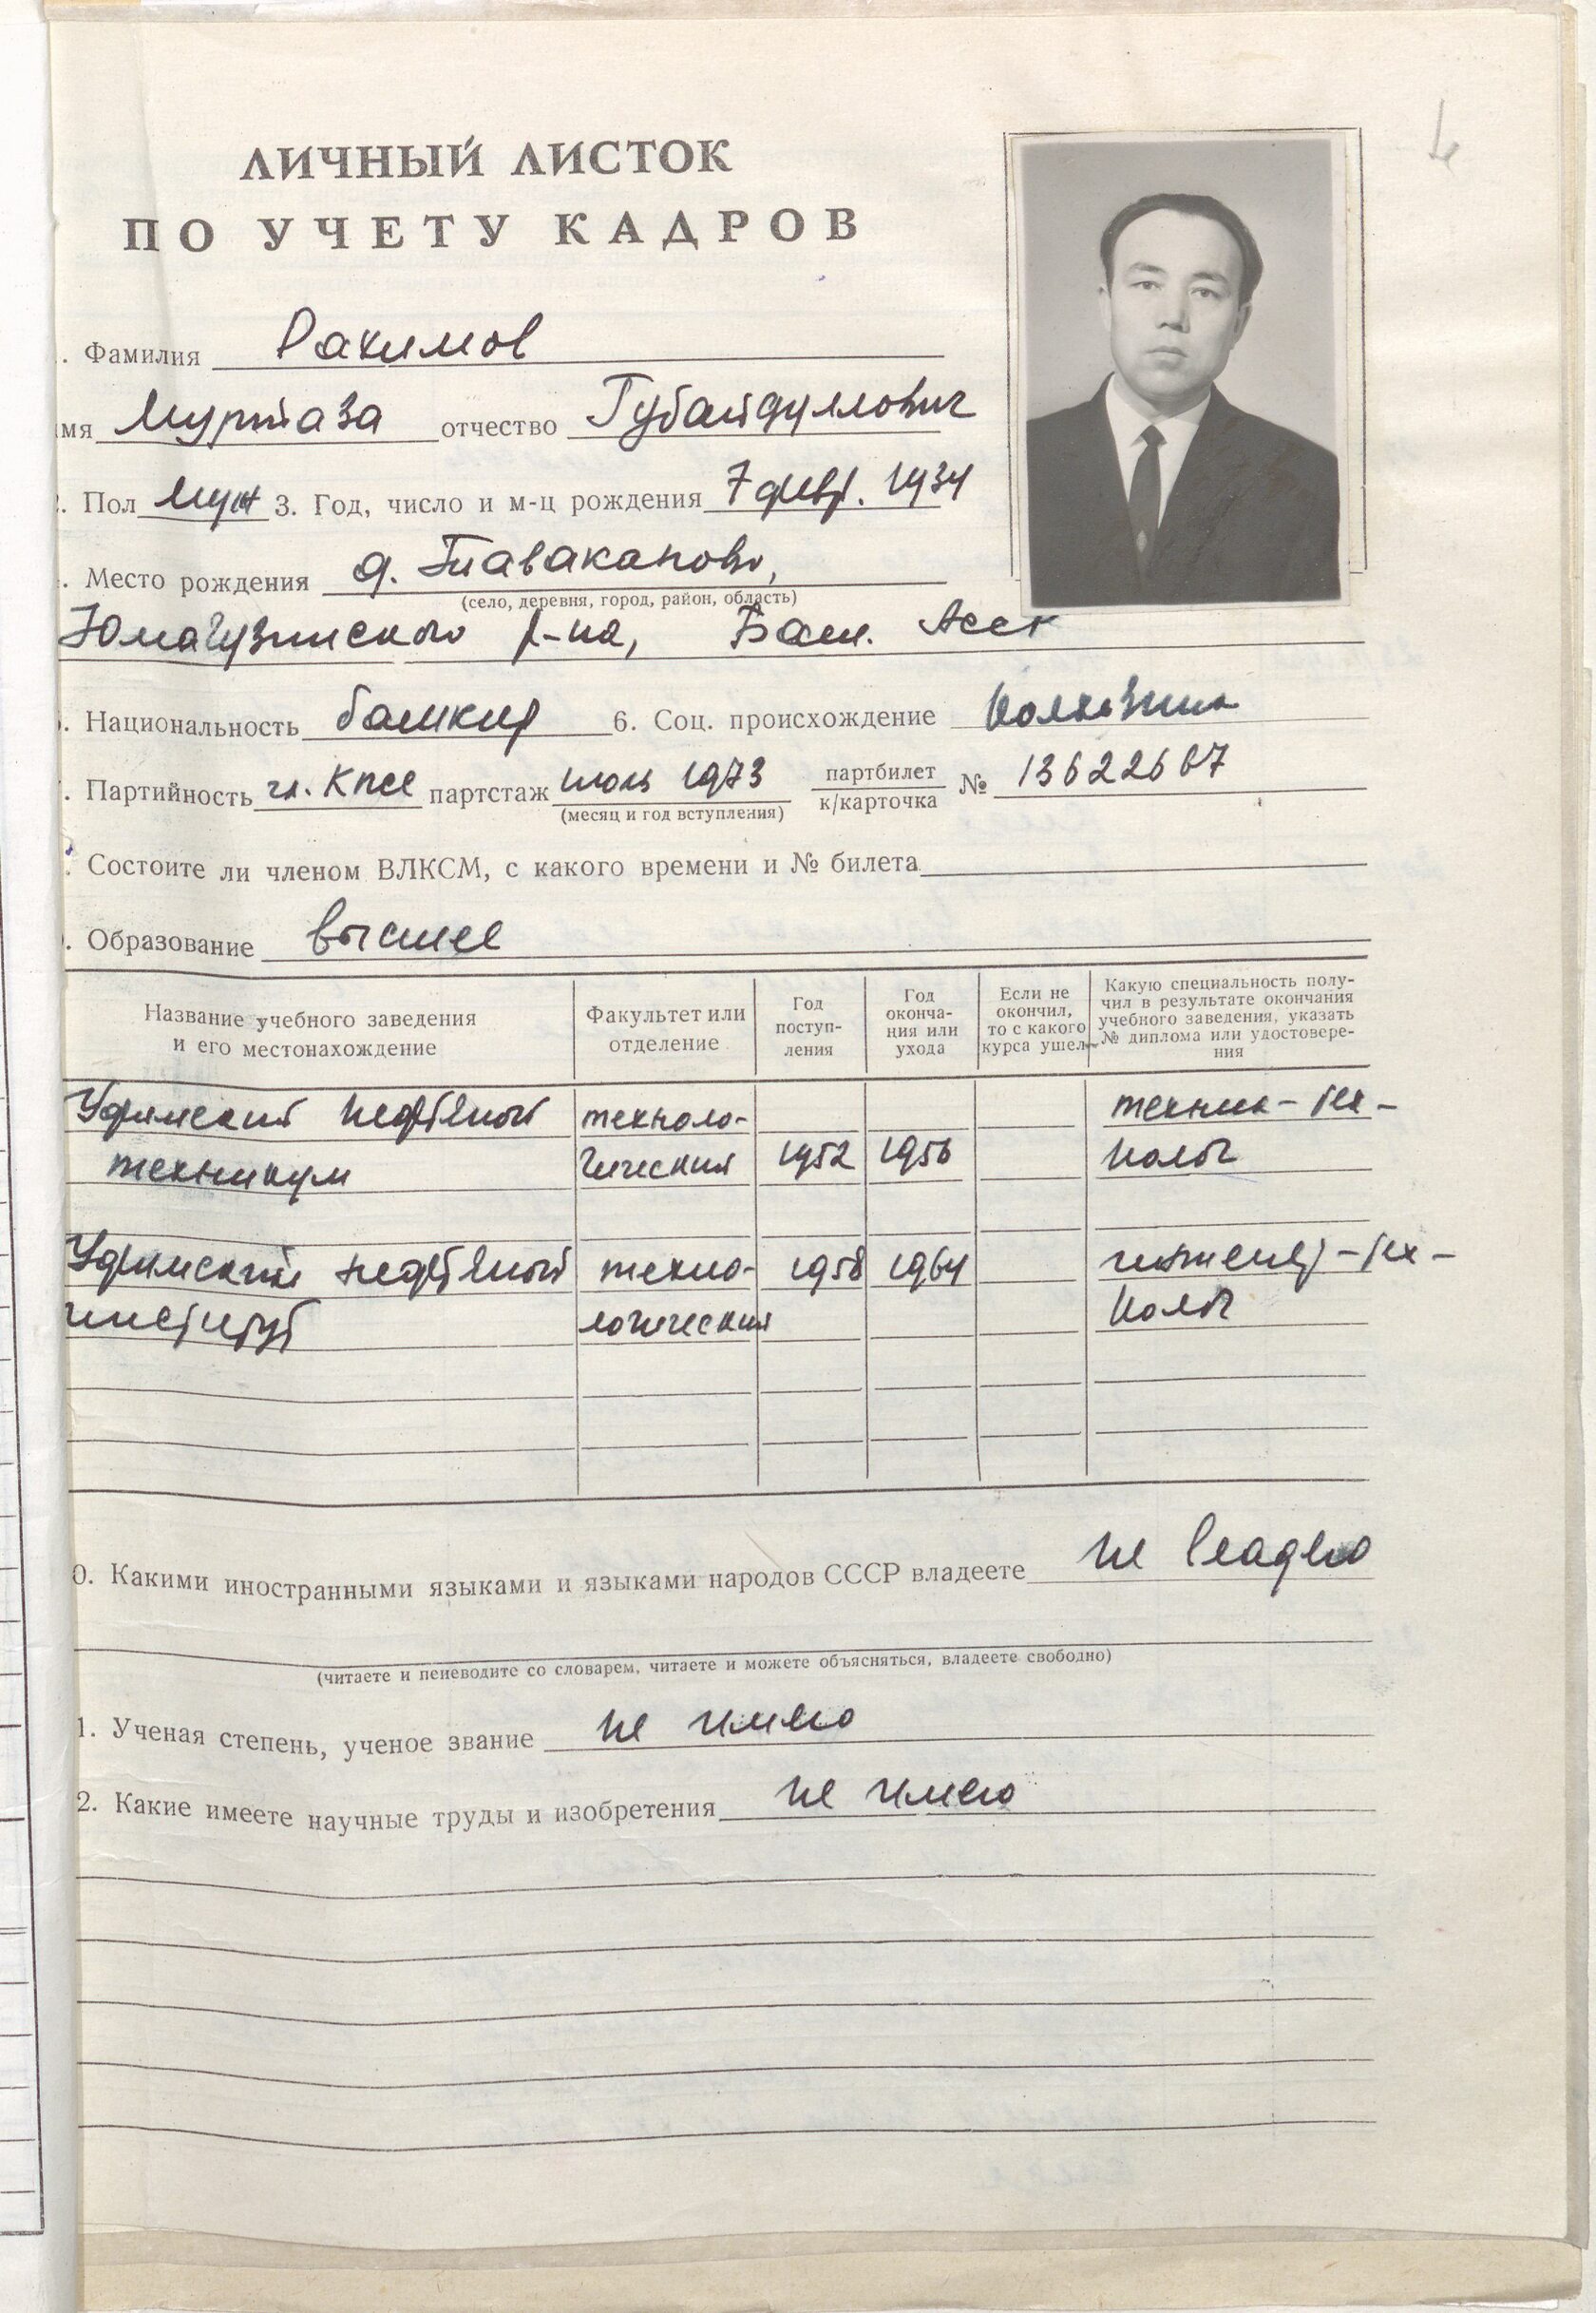 ЛИЧНЫЙ ЛИСТОК
ПО УЧЕТУ КАДРОВ
. Фамилия Рахимов
мя Муртаза отчество Губайдуллович
2. Пол муж 3. Год, число и м-ц рождения 7 февр. 1934
. Место рождения д. Таваканово,
(село, деревня, город, район, область)
Юмагузинского р-на, Баш. Асср
. Национальность башкир 6. Соц. происхождение колхозник
. Партийность чл. КПСС партстаж июль 1973 партбилет № 13622667
(месяц и год вступления) к/карточка
. Состоите ли членом ВЛКСМ, с какого времени и № билета
. Образование высшее
Название учебного заведения и его местонахождение
Факультет или отделение
Год поступ- ления
Год оконча- ния или ухода
Если не окончил, то с какого курса ушел
Какую специальность полу- чил в результате окончания учебного заведения, указать № диплома или удостовере- ния
Уфимский нефтяной техноло- техник-тех-
техникум гический 1952 1956 нолог
Уфимский нефтяной техно- 1958 1964 инженер-тех-
институт логический нолог
0. Какими иностранными языками и языками народов СССР владеете не владею
(читаете и пеиеводите со словарем, читаете и можете объясняться, владеете свободно)
1. Ученая степень, ученое звание не имею
2. Какие имеете научные труды и изобретения не имею